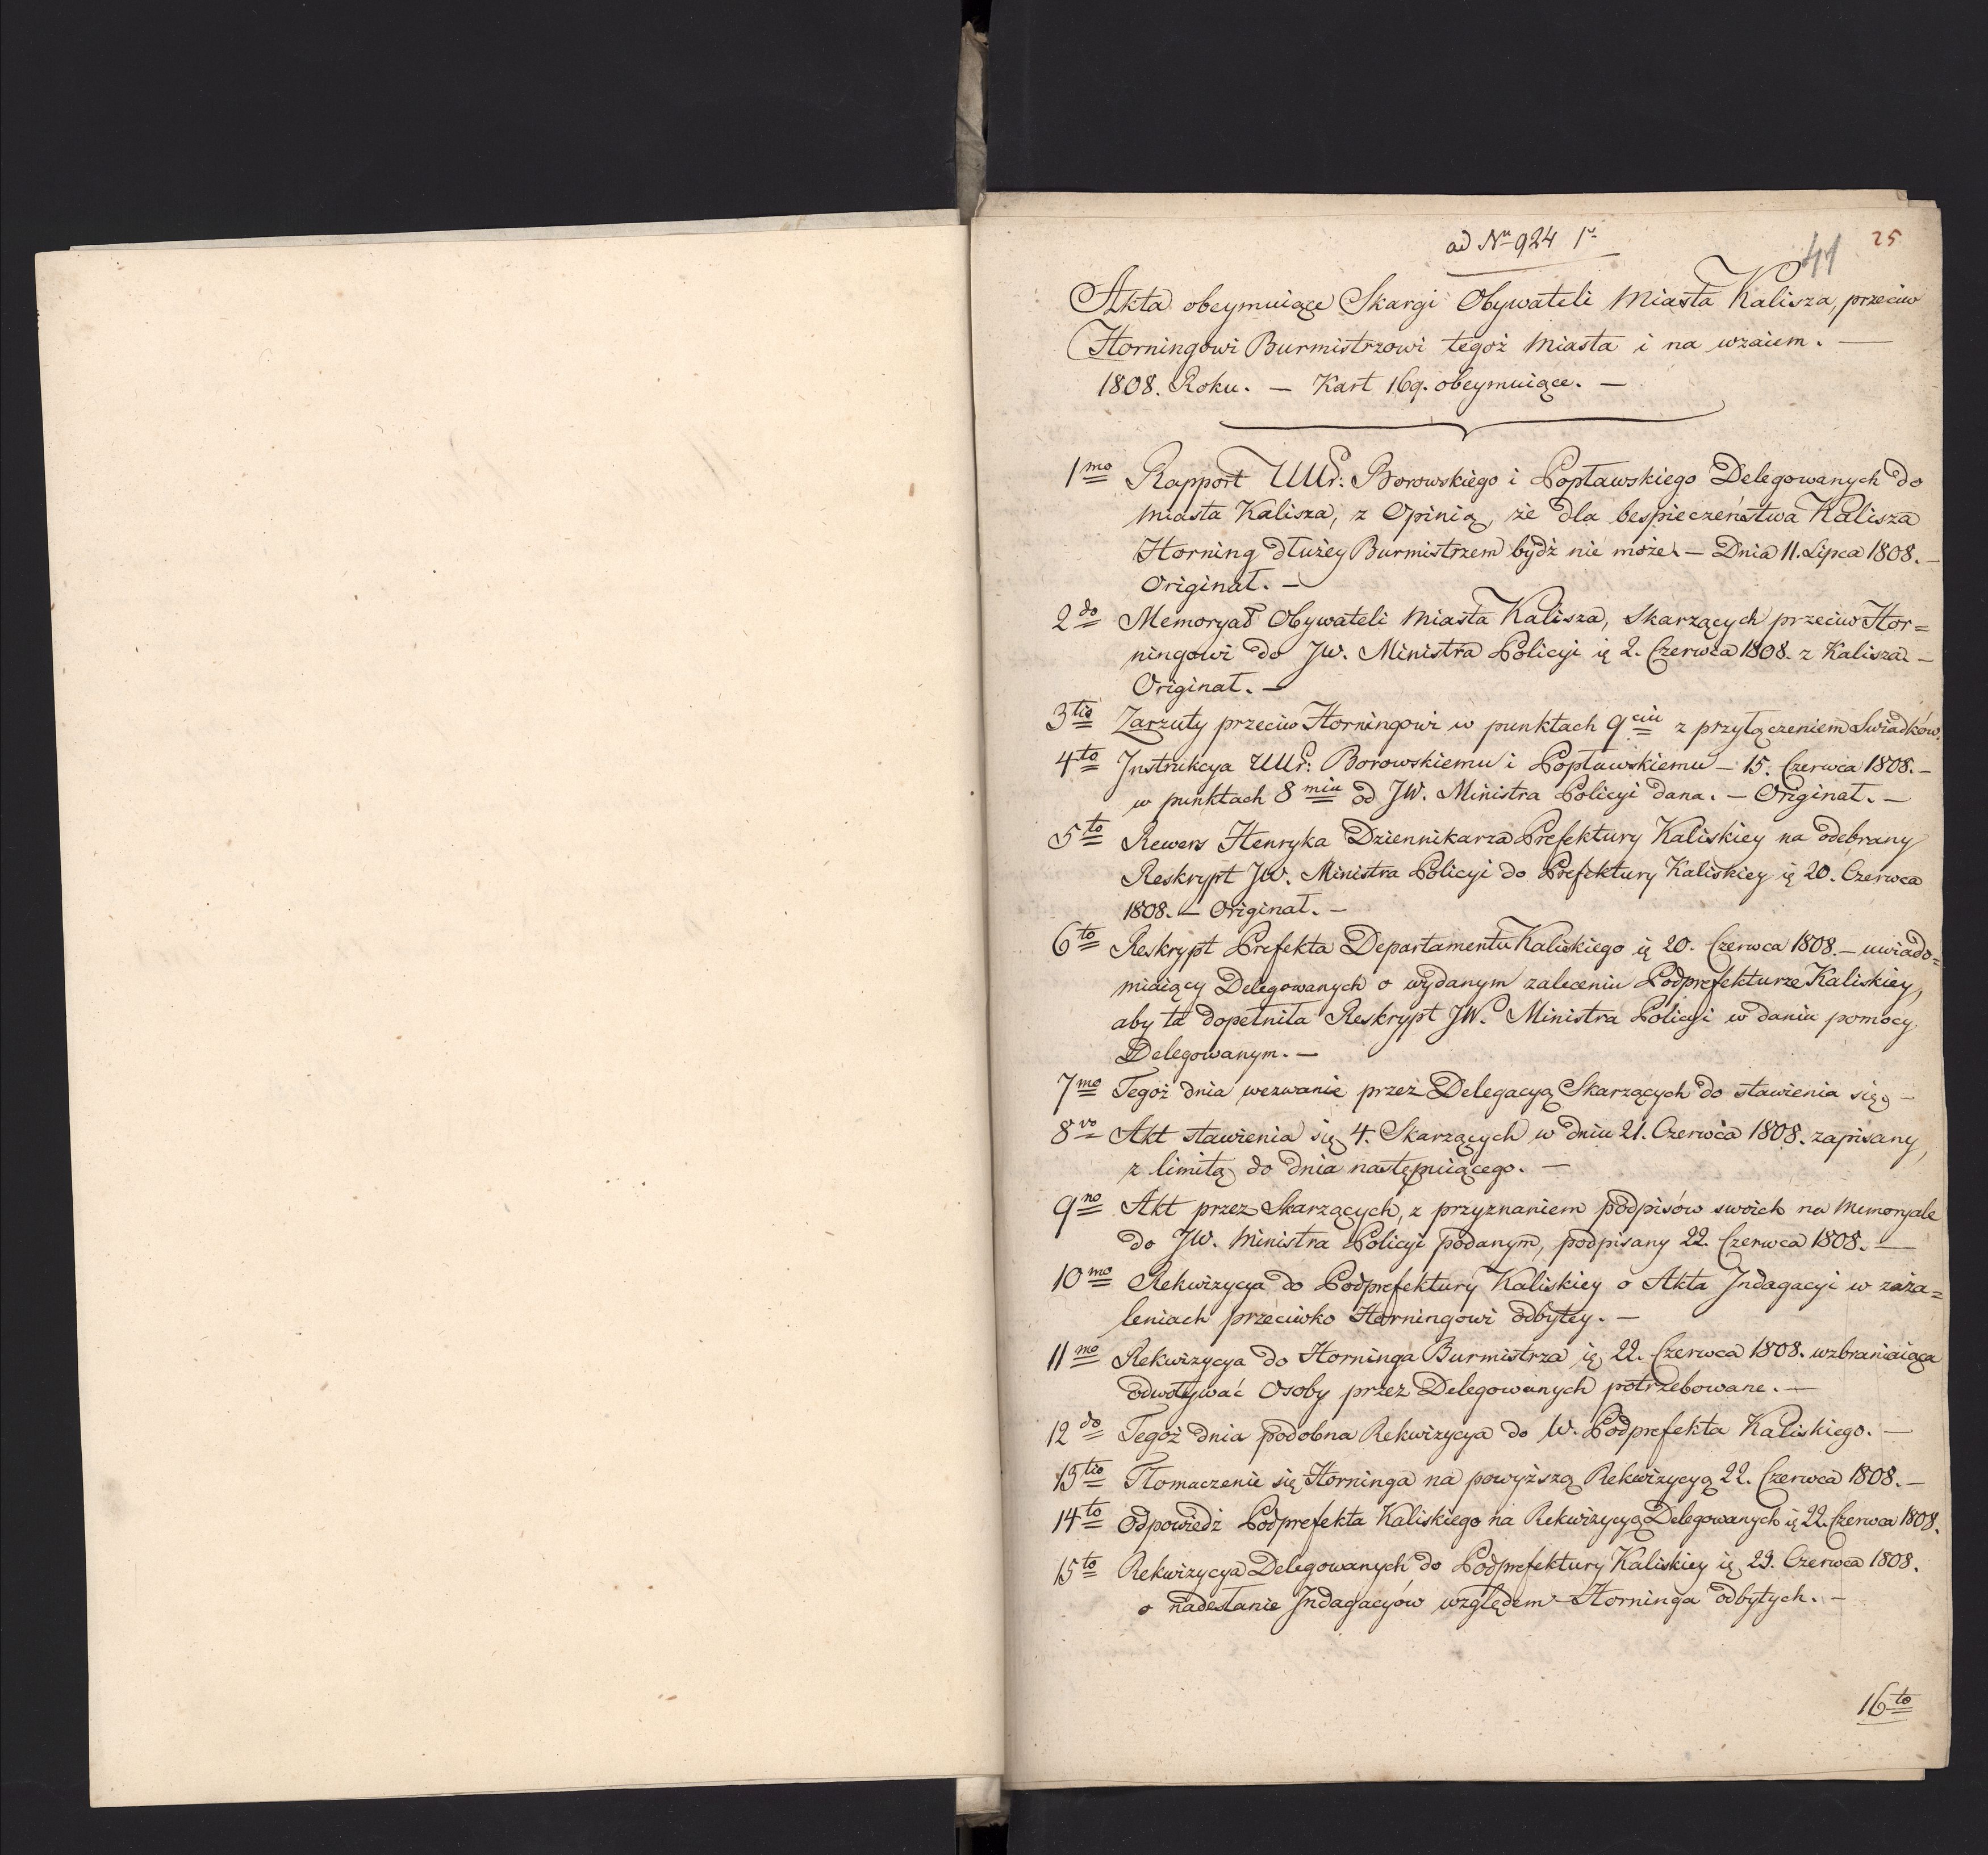 ad Nu 924 1o
41 25
Akta obeymuiące Skargi Obywateli Miasta Kalisza, przeciw
Horningowi Burmistrzowi tegoż Miasta i na wzaiem. —
1808. Roku. — Kart 169. obeymuiące. —
1mo Rapport UUr: Borowskiego i Popławskiego Delegowanych do
Miasta Kalisza, z Opinią, że dla bespieczeństwa Kalisza
Horning dłużey Burmistrzem bydź nie może. — Dnia 11. Lipca 1808. —
Originał. —
2do Memoryał Obywateli Miasta Kalisza, Skarzących przeciw Hor=
ningowi do JW. Ministra Policyi 2. Czerwca 1808. z Kalisza. —
Originał. —
3tio Zarzuty przeciw Horningowi w punktach 9ciu z przyłączeniem Swiadków.
4to Instrukcya UUr: Borowskiemu i Popławskiemu — 15. Czerwca 1808. —
w punktach 8miu od JW. Ministra Policyi dana. — Originał. —
5to Rewers Henryka Dziennikarza Prefektury Kaliskiey na odebrany
Reskrypt JW. Ministra Policyi do Prefektury Kaliskiey 20. Czerwca
1808. — Originał. —
6to Reskrypt Prefekta Departamentu Kaliskiego 20. Czerwca 1808. — uwiado=
miaiący Delegowanych o wydanym zaleceniu Podprefekturze Kaliskiey,
aby ta dopełniła Reskrypt JW. Ministra Policyi w daniu pomocy
Delegowanym. —
7mo Tegoż dnia wezwanie przez Delegacyą Skarzących do stawienia się, —
8vo Akt stawienia się 4. Skarzących w dniu 21. Czerwca 1808. zapisany,
z limitą do dnia następuiącego. —
9no Akt przez Skarzących, z przyznaniem podpisów swoich na Memoryale
do JW. Ministra Policyi podanym, podpisany 22. Czerwca 1808. —
10mo Rekwizycya do Podprefektury Kaliskiey o Akta Indagacyi w zaża=
leniach przeciwko Horningowi odbytey. —
11mo Rekwizycya do Horninga Burmistrza 22. Czerwca 1808. wzbraniaiąca
odwoływać Osoby przez Delegowanych potrzebowane. —
12do Tegoż dnia podobna Rekwizycya do W. Podprefekta Kaliskiego. —
13tio Tłomaczenie się Horninga na powyższą Rekwizycyą 22. Czerwca 1808. —
14to Odpowiedź Podprefekta Kaliskiego na Rekwizycyą Delegowanych 22. Czerwca 1808.
15to Rekwizycya Delegowanych do Podprefektury Kaliskiey 23. Czerwca 1808.
o nadesłanie Indagacyów względem Horninga odbytych. —
16to